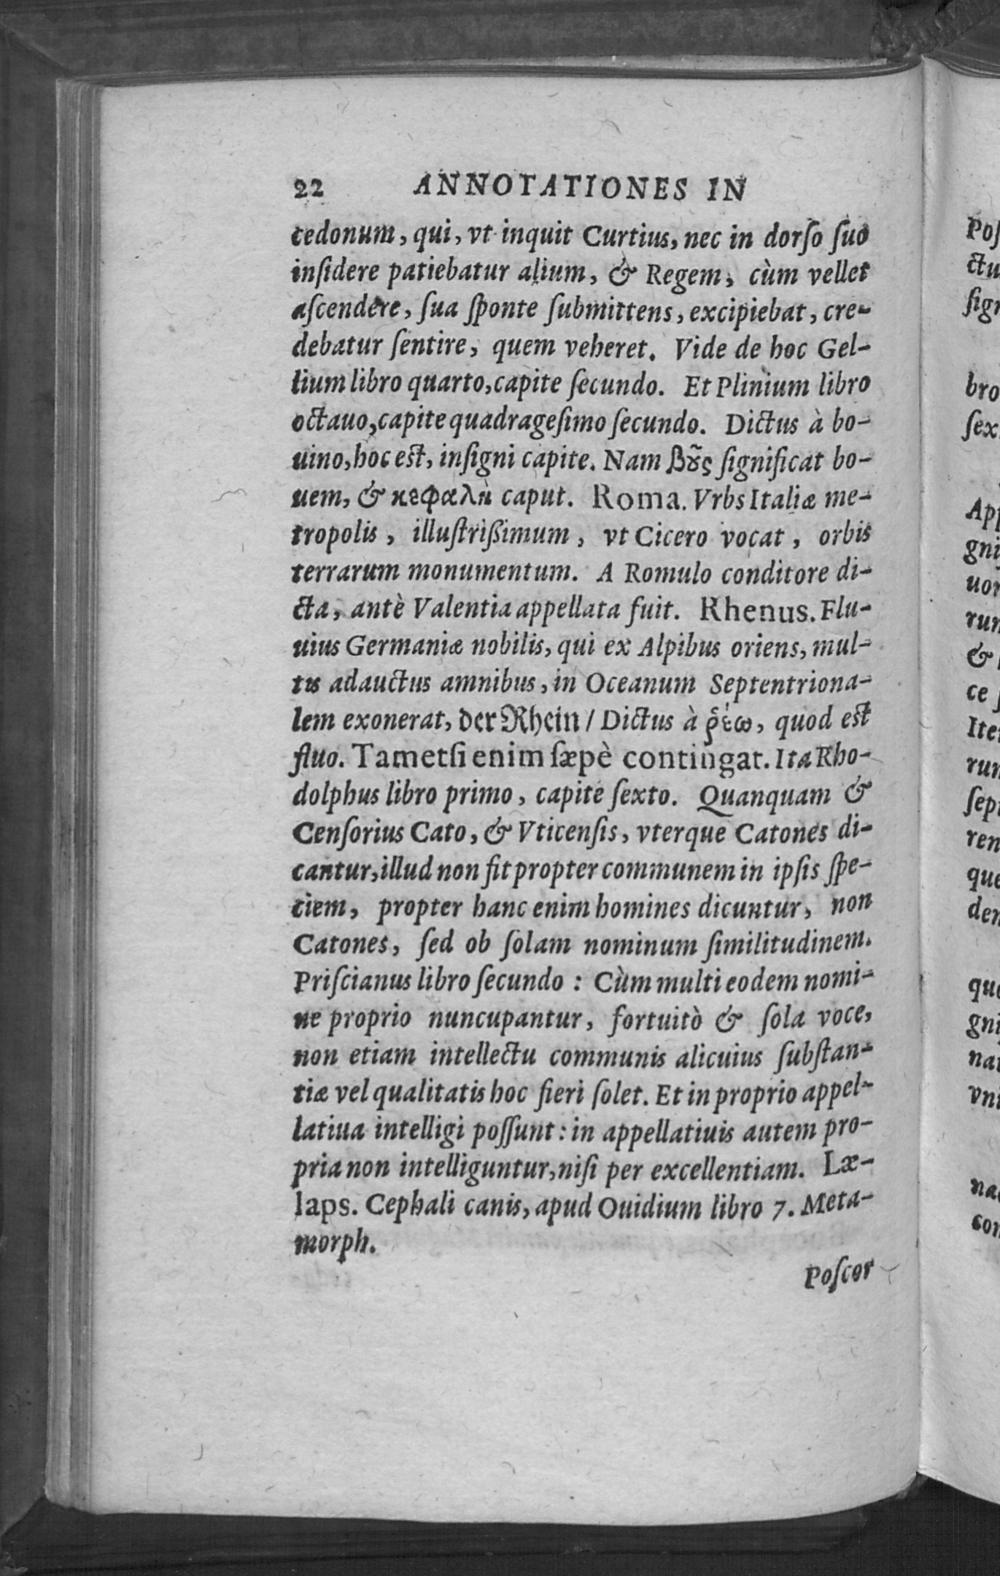 22 ANNOTATIONES IN
cedonum, qui, vt inquit Curtius, nec in dorſo ſuo
inſidere patiebatur alium, & Regem, cùm vellet
aſcendere, ſua ſponte ſubmittens, excipiebat, cre-
debatur ſentire, quem veheret. Vide de hoc Gel-
lium libro quarto, capite ſecundo. Et Plinium libro
octauo, capite quadrageſimo ſecundo. Dictus à bo-
uino, hoc eſt, inſigni capite. Nam βȣ͂ς ſignificat bo-
uem, & κεφαλὴ caput. Roma. Vrbs Italiæ me-
tropolis, illuſtrißimum, vt Cicero vocat, orbis
terrarum monumentum. A Romulo conditore di-
cta, antè Valentia appellata fuit. Rhenus. Flu-
uius Germaniæ nobilis, qui ex Alpibus oriens, mul-
tis adauctus amnibus, in Oceanum Septentriona-
lem exonerat, der Rhein / Dictus à ῥέω, quod eſt
fluo. Tametſi enim ſæpè contingat. Ita Rho-
dolphus libro primo, capite ſexto. Quanquam &
Cenſorius Cato, & Vticenſis, vterque Catones di-
cantur, illud non fit propter communem in ipſis ſpe-
ciem, propter hanc enim homines dicuntur, non
Catones, ſed ob ſolam nominum ſimilitudinem.
Priſcianus libro ſecundo : Cùm multi eodem nomi-
ne proprio nuncupantur, fortuitò & ſola voce,
non etiam intellectu communis alicuius ſubſtan-
tiæ vel qualitatis hoc fieri ſolet. Et in proprio appel-
latiua intelligi poſſunt : in appellatiuis autem pro-
pria non intelliguntur, niſi per excellentiam. Læ-
laps. Cephali canis, apud Ouidium libro 7. Meta-
morph.
Poſcor
Poſ
ctu
ſig
bro
ſex
App
gni
uor
rur
&
ce
Ite
rur
ſep
ren
que
der
que
gni
nat
vni
nac
con